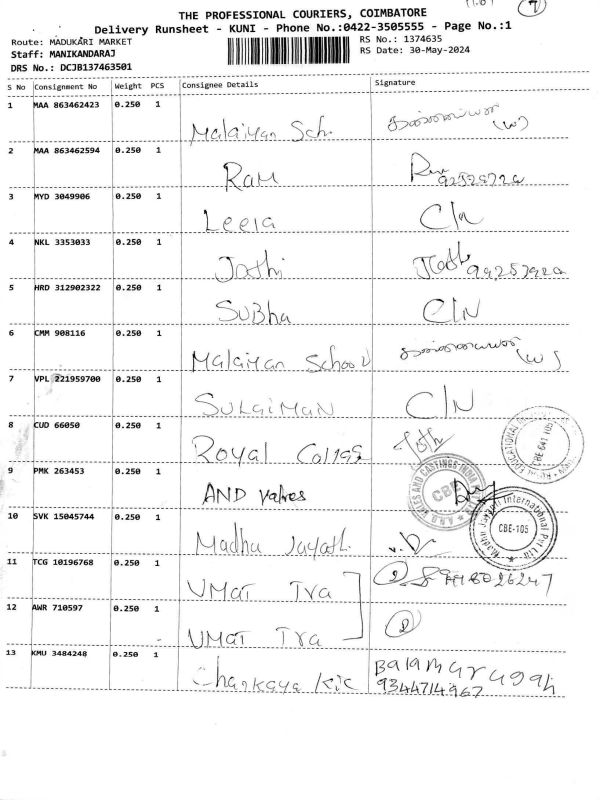 THE PROFESSIONAL COURIERS, COIMBATORE
Delivery Runsheet - KUNI - Phone No.:0422-3505555 - Page No.:1
Route: MADUKARI MARKET
RS No.: 1374635
Staff: MANIKANDARAJ
RS Date: 30-May-2024
DRS No.: DCJB137463501
S No Consignment No Weight PCS Consignee Details Signature
1 MAA 863462423 0.250 1 Malaiman Sch.
2 MAA 863462594 0.250 1 Ram
3 MYD 3049906 0.250 1 Leela C/N
4 NKL 3353033 0.250 1 Jothi
5 HRD 312902322 0.250 1 SUBha C/N
6 CMM 908116 0.250 1 Malaiman School
7 VPL 221959700 0.250 1 SULAIMAN C/N
8 CUD 66050 0.250 1 Royal
9 PMK 263453 0.250 1 AND Valves
10 SVK 15045744 0.250 1 Madhu Jayath.
11 TCG 10196768 0.250 1 UMAT Tra
12 AWR 710597 0.250 1 UMAT Tra 2
13 KMU 3484248 0.250 1 Balamurugan
9344714967
CBE-105